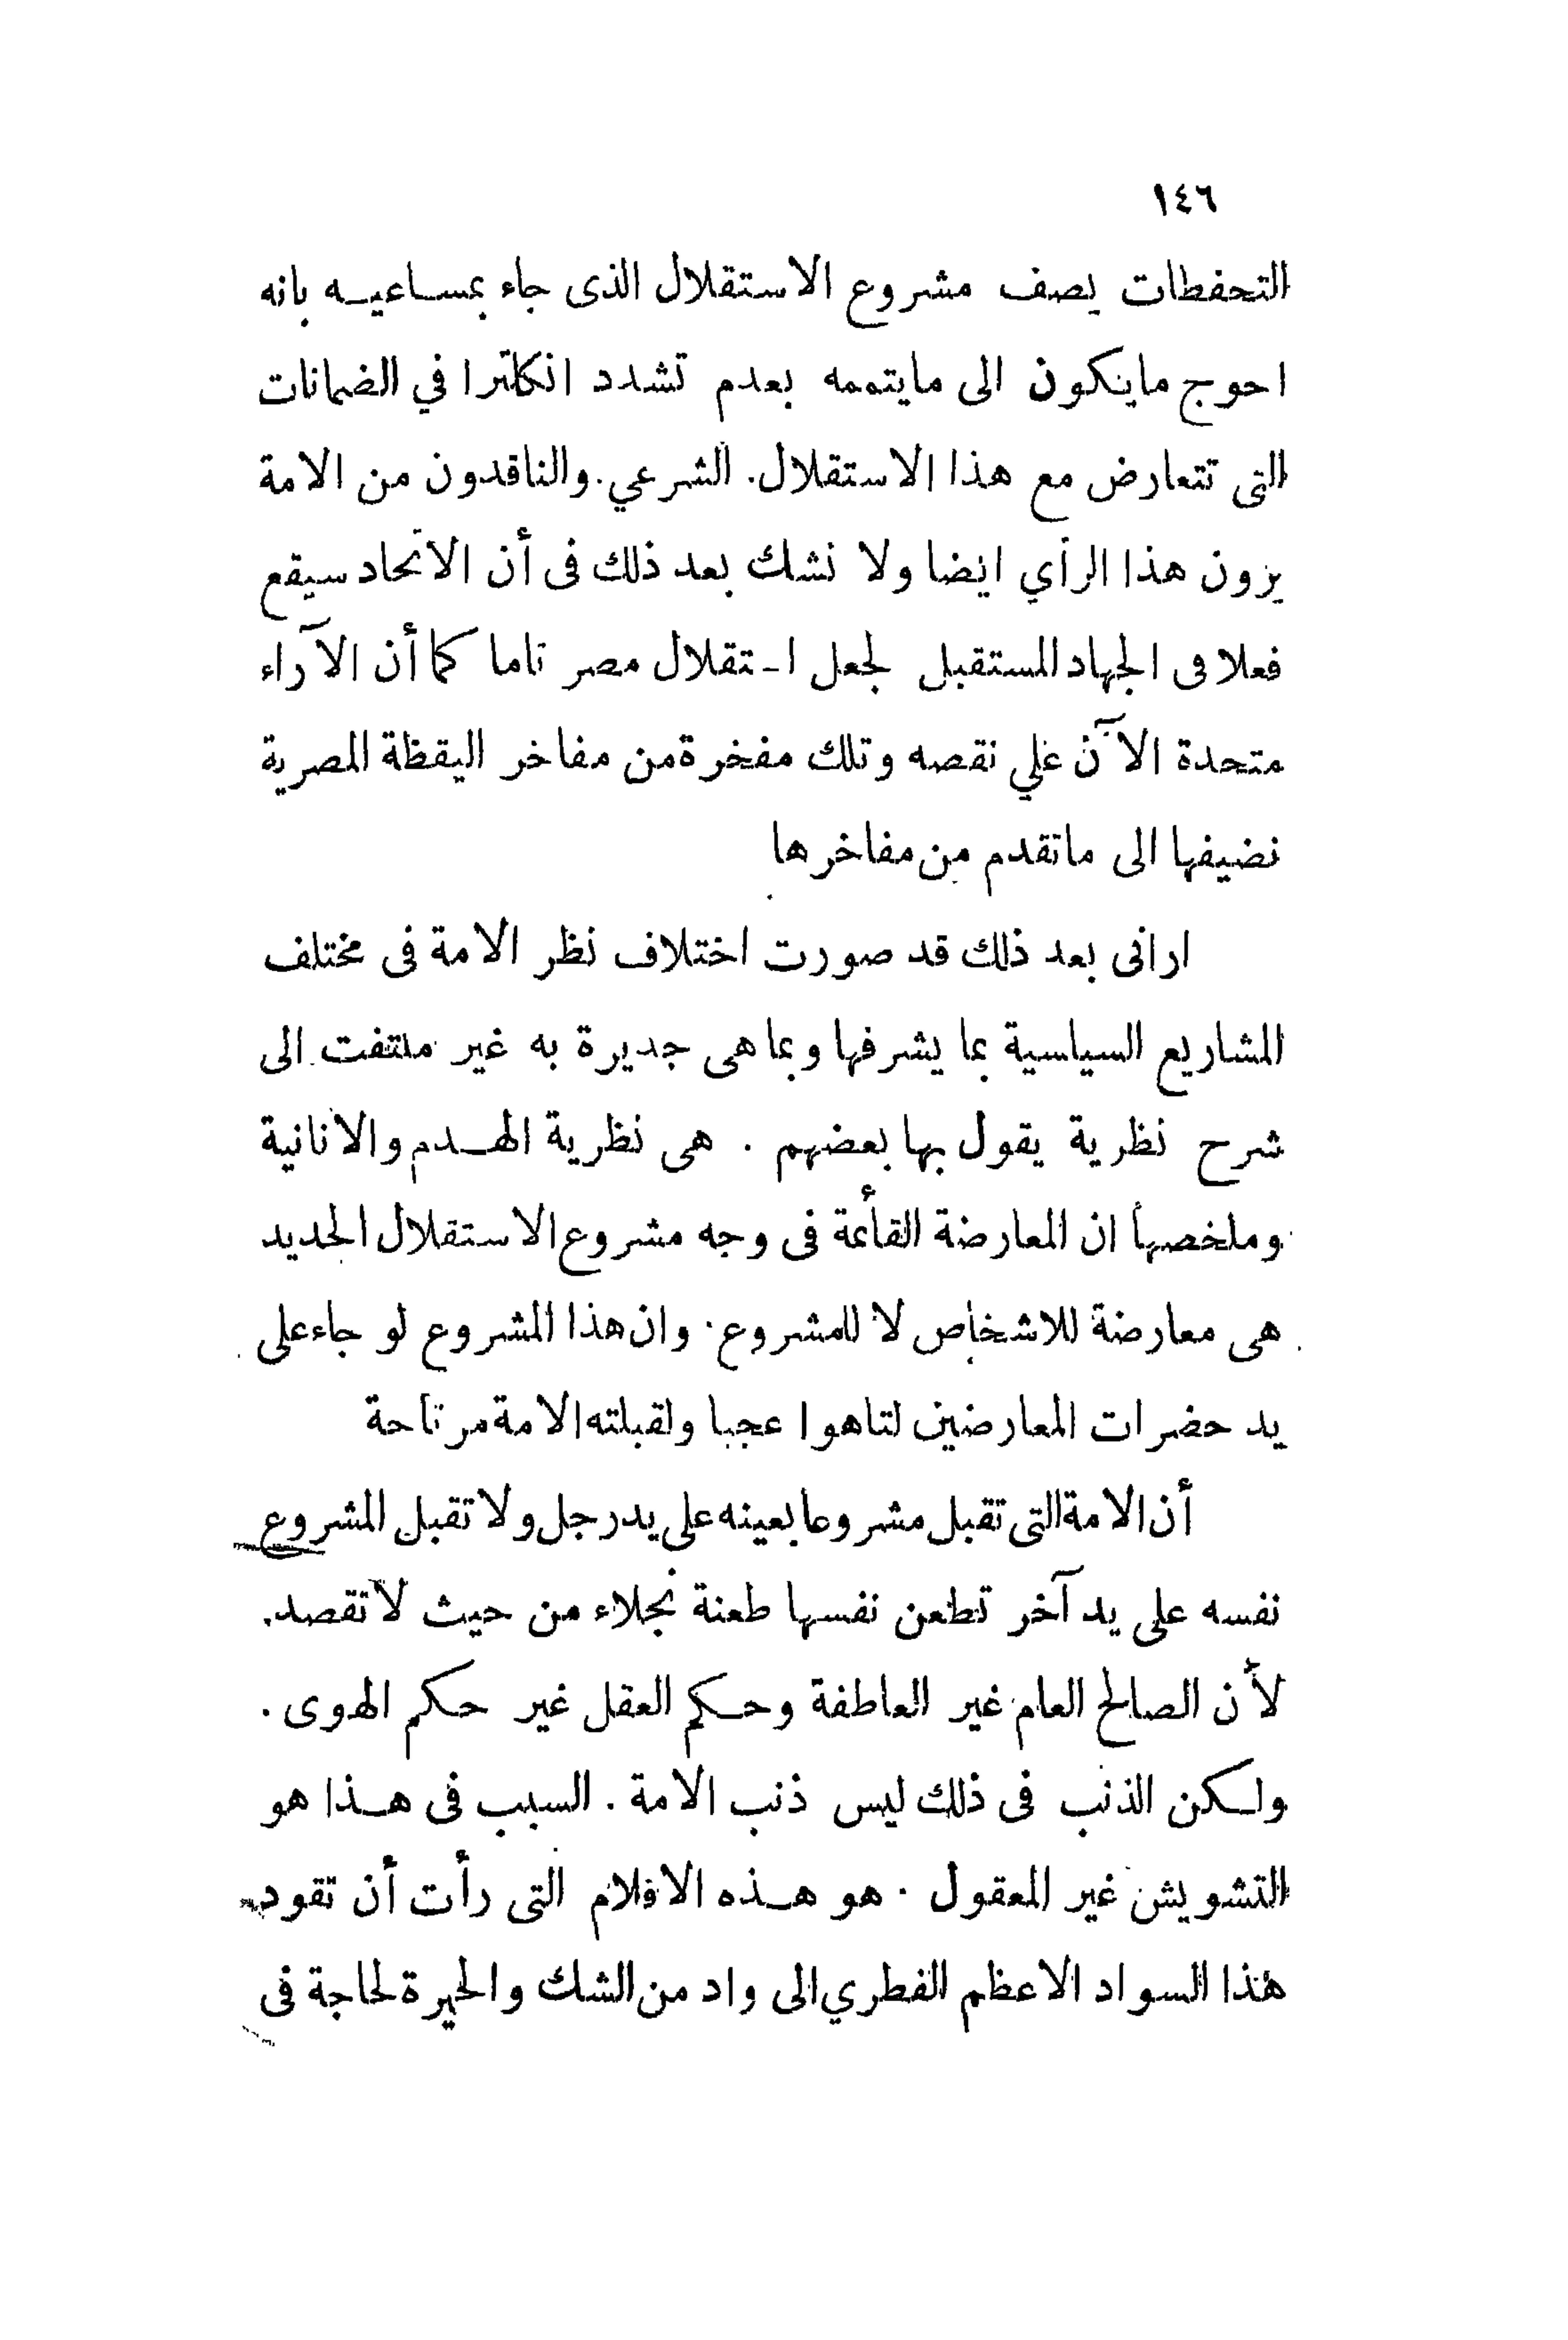 ١٤٦
التحفطات يصف مشروع الاستقلال الذى جاء بمساعيه بانه
احوج مايكون الى مايتممه بعدم تشدد انكلترا في الضمانات
التى تتعارض مع هذا الاستقلال. الشرعي. والناقدون من الامة
يرون هذا الرأي ايضا ولا نشك بعد ذلك فى أن الاتحاد سيقع
فعلا فى الجهاد المستقبل لجعل ا-تقلال مصر تاما كما أن الآراء
متحدة الآن علي نقصه وتلك مفخرة من مفاخر اليقظة المصرية
نضيفها الى ماتقدم من مفاخرها
ارانى بعد ذلك قد صورت اختلاف نظر الامة فى مختلف
المشاريع السياسية بما يشرفها وبما هى جديرة به غير ملتفت الى
شرح نظرية يقول بها بعضهم . هى نظرية الهدم والانانية
وملخصها ان المعارضة القأئمة فى وجه مشروع الاستقلال الجديد
هى معارضة للاشخاص لا للمشروع. وان هذا المشروع لو جاء على
يد حضرات المعارضين لتاهوا عجبا ولقبلته الامة مرتاحة
أن الامة التى تقبل مشروعا بعينه على يد رجل ولا تقبل المشروع
نفسه على يد آخر تطعن نفسها طعنة نجلاء من حيث لا تقصد.
لأن الصالح العام غير العاطفة وحكم العقل غير حكم الهوى .
ولكن الذنب فى ذلك ليس ذنب الامة . السبب فى هذا هو
التشويش غير المعقول . هو هذه الاقلام التى رأت أن تقود
هذا السواد الاعظم الفطري الى واد من الشك والحيرة لحاجة فى